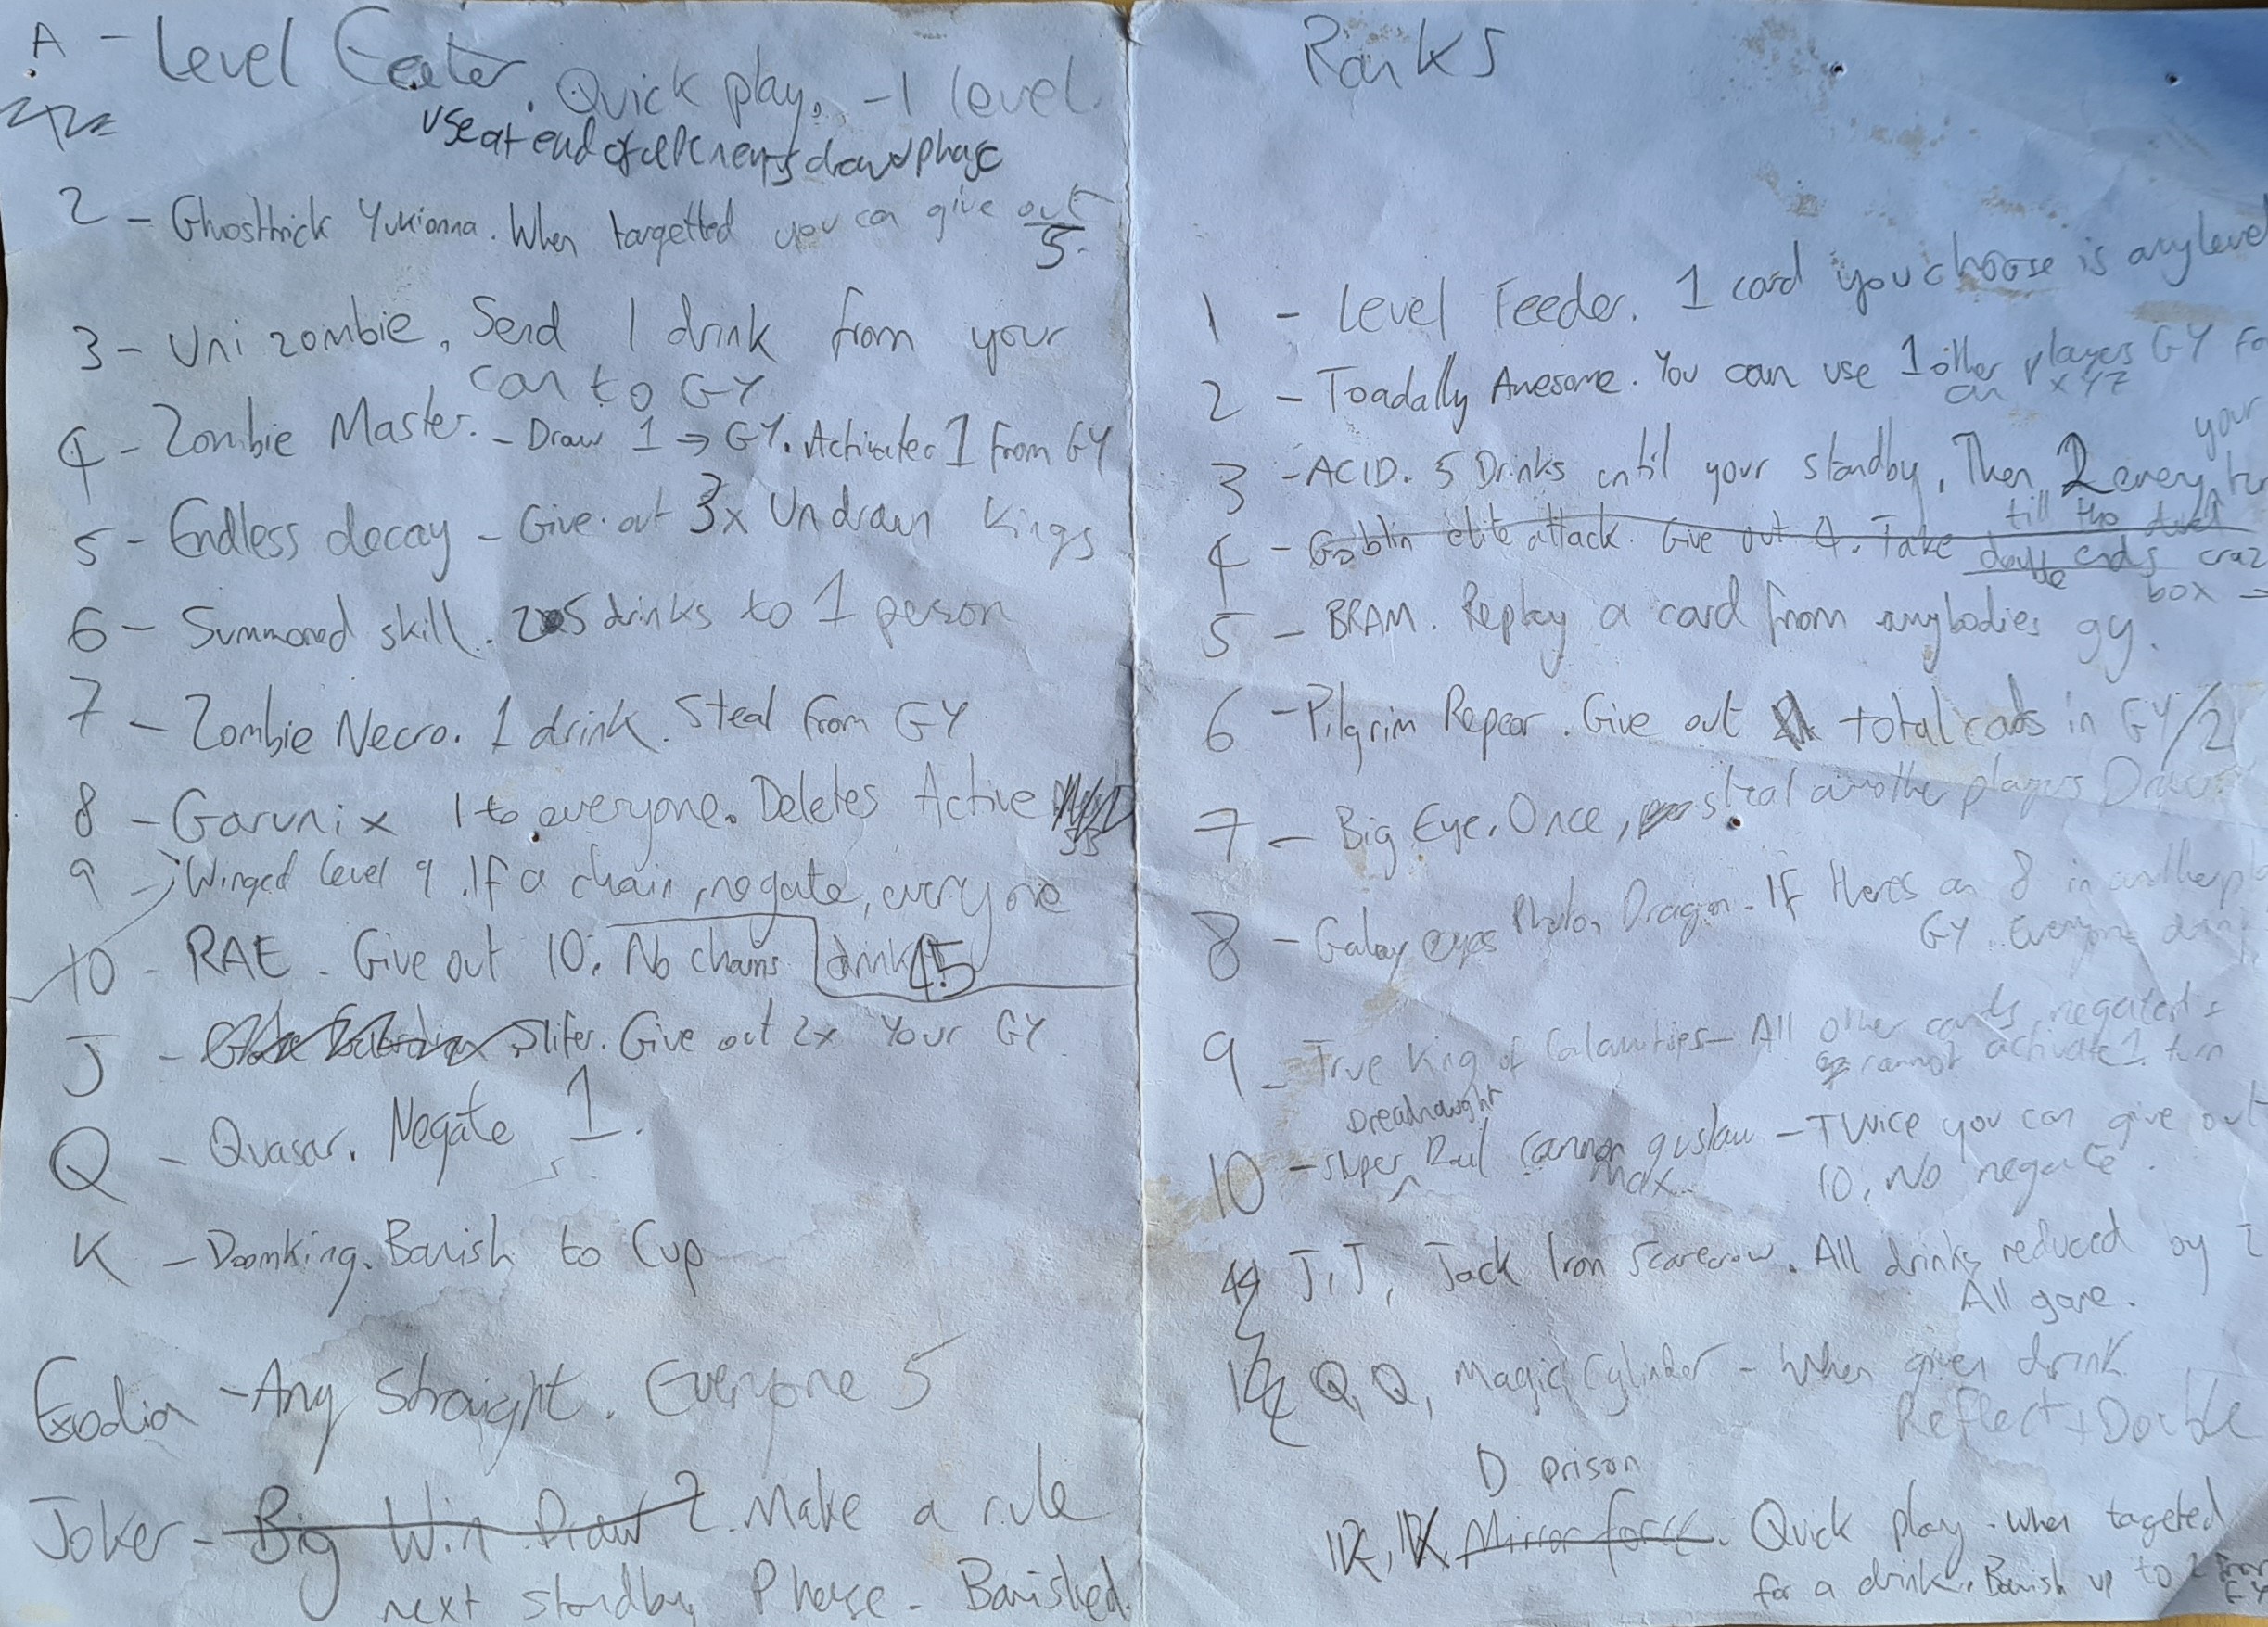 A - Level Eater. Quick play. -1 level.
use at end of opponents draw phase
2 - Ghostrick Yukionna. When targetted you can give out 5.
3 - Uni zombie, Send 1 drink from your
can to GY
4 - Zombie Master. - Draw 1 → GY. Activates 1 from GY
5 - Endless decay - Give out 3x Undrawn Kings
6 - Summoned skill. 5 drinks to 1 person
7 - Zombie Necro. 1 drink. Steal from GY
8 - Garunix 1 to everyone. Deletes Active
9 - Winged level 9. If a chain, negate, everyone
drink
10 - RAE. Give out 10. No chains
J - Slifer. Give out 2x Your GY
Q - Quasar. Negate 1.
K - Doomking. Banish to Cup
Exodia - Any Straight. Everyone 5
Joker - Big Win Draw 2. Make a rule
next standby Phase - Banished.
Ranks
1 - Level Feeder. 1 card you choose is any level
2 - Toadally Awesome. You can use 1 other players GY
an xyz
your
3 - ACID. 5 Drinks until your standby, Then 2 every
till the duel
ends
4 - Goblin elite attack. Give out 4. Take double
box
5 - BRAM. Replay a card from anybodies gy.
6 - Pilgrim Repear. Give out total cads in GY/2
7 - Big Eye. Once, steal another players
8 - Galaxy eyes Photon Dragon. If theres an 8 in another
GY. Everyone
9 - True King of Calamities - All other cards negated &
cannot activate 1 turn
Dreadnaught
10 - Super Rail Cannon gustav - Twice you can give out
max 10, No negate.
J, J, Jack Iron Scarecrow. All drinks reduced by
All game.
Q, Q, Magic Cylinder - When given drink
Reflect + Double
D prison
K, K Mirror force. Quick play - when targeted
for a drink. Banish up to 2 from
GY